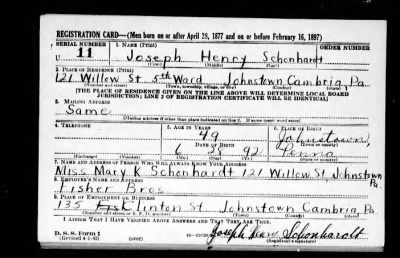 REGISTRATION CARD—(Men born on or after April 28, 1877 and on or before February 16, 1897)
SERIAL NUMBER 1. NAME (Print) ORDER NUMBER
U 11 Joseph Henry Schonhardt
(First) (Middle) (Last)
2. PLACE OF RESIDENCE (Print)
121 Willow St 5th Ward Johnstown Cambria Pa
(Number and street) (Town, township, village, or city) (County) (State)
[THE PLACE OF RESIDENCE GIVEN ON THE LINE ABOVE WILL DETERMINE LOCAL BOARD
JURISDICTION; LINE 2 OF REGISTRATION CERTIFICATE WILL BE IDENTICAL]
3. MAILING ADDRESS
Same
[Mailing address if other than place indicated on line 2. If same insert word same]
4. TELEPHONE 5. AGE IN YEARS 6. PLACE OF BIRTH
49 Johnstown,
DATE OF BIRTH (Town or county)
6 28 92 Penna
(Exchange) (Number) (Mo.) (Day) (Yr.) (State or country)
7. NAME AND ADDRESS OF PERSON WHO WILL ALWAYS KNOW YOUR ADDRESS
Miss Mary K Schonhardt 121 Willow St, Johnstown
Pa.
8. EMPLOYER'S NAME AND ADDRESS
Fisher Bros
9. PLACE OF EMPLOYMENT OR BUSINESS
135 Clinton St Johnstown Cambria Pa.
(Number and street or R. F. D. number) (Town) (County) (State)
I AFFIRM THAT I HAVE VERIFIED ABOVE ANSWERS AND THAT THEY ARE TRUE.
D. S. S. Form 1
(Revised 4-1-42) (over) Joseph Henry Schonhardt
(Registrant's signature)